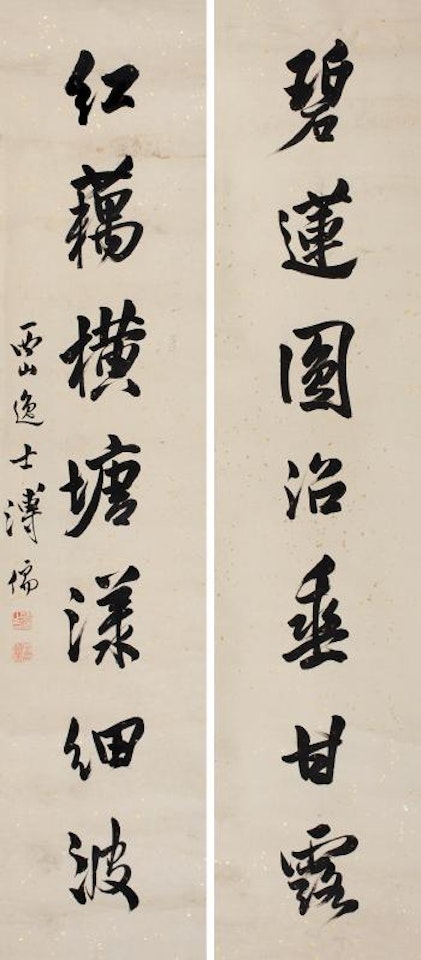 碧蓮圓沼垂甘露
紅藕橫塘漾細波
西山逸士溥儒